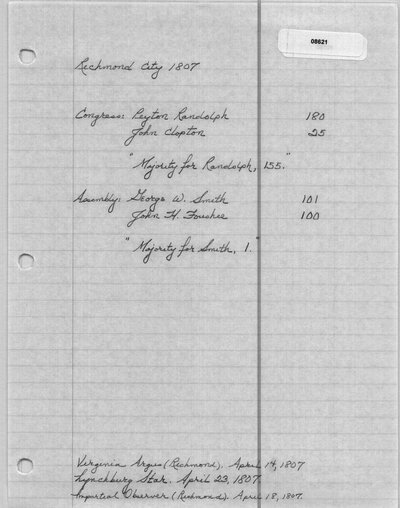 08621
Richmond City 1807
Congress: Peyton Randolph 180
John Clopton 25
"Majority for Randolph, 155."
Assembly: George W. Smith 101
John H. Foushee 100
"Majority for Smith, 1."
Virginia Argus (Richmond). April 14, 1807
Lynchburg Star. April 23, 1807.
Impartial Observer (Richmond). April 18, 1807.